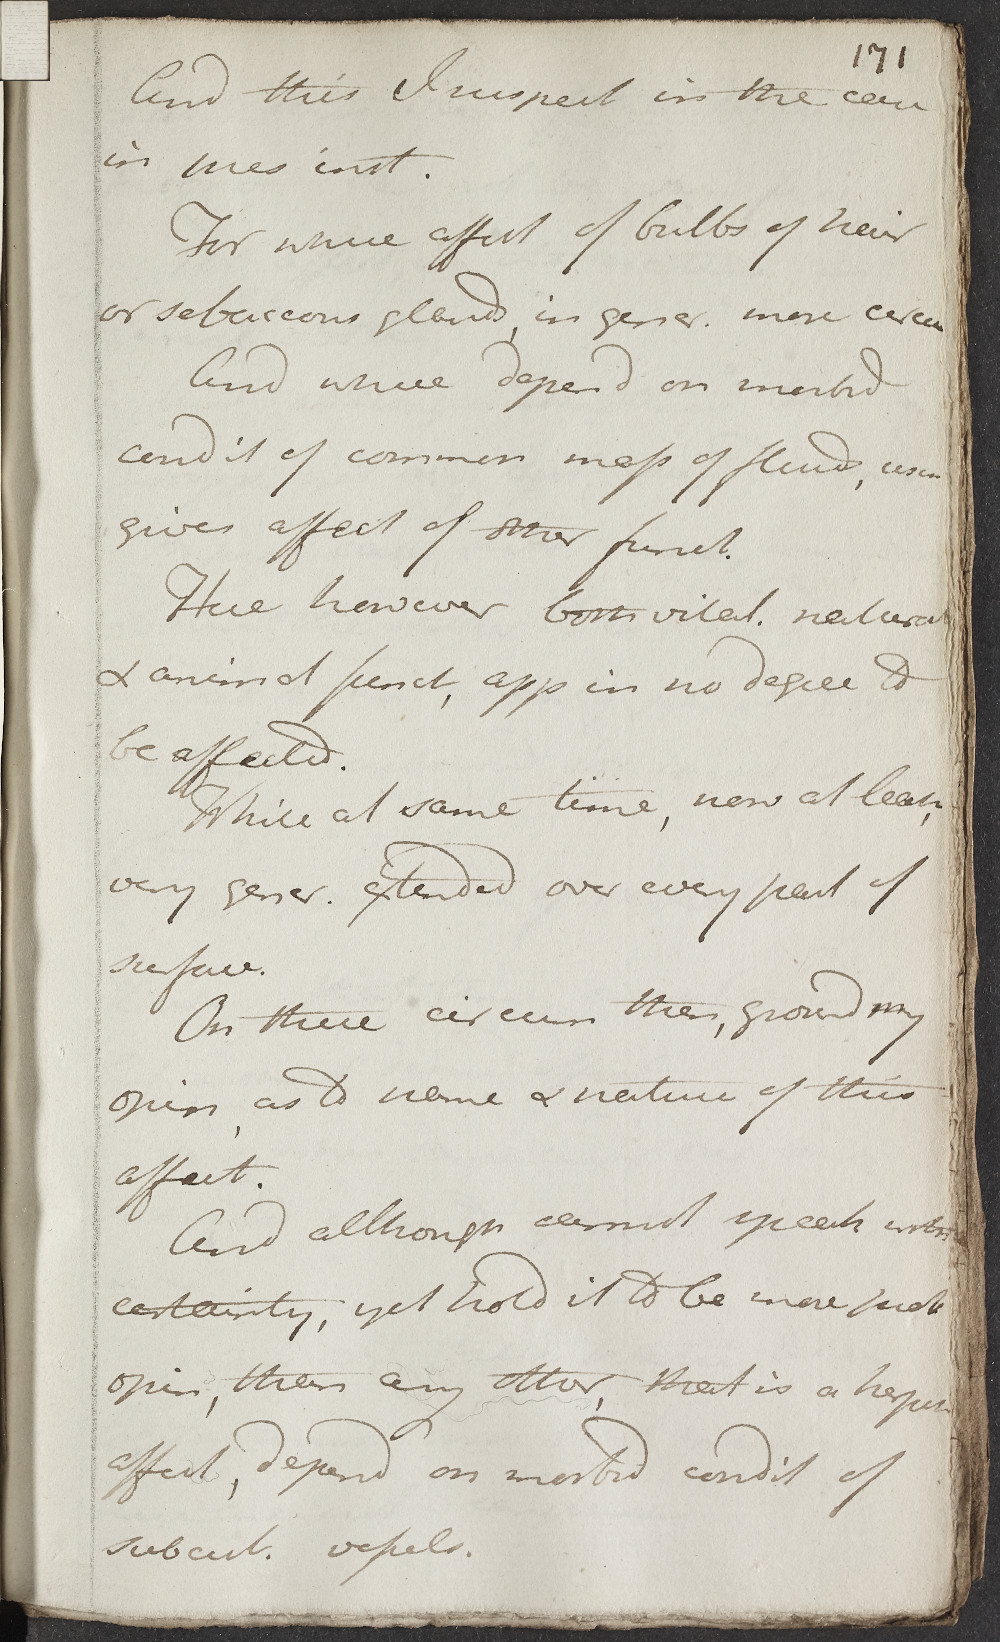 171
And this I suspect in the case
in pres inst.
For where affect of bulbs of hair
or sebaceous glands, in gener. more circum
And where depend on morbid
condit of common mass of fluids, usu
gives affect of other funct.
Here however both vital. natural
& animal funct, app in no degree to
be affected.
While at same time, now at least,
very gener. extended over every part of
surface.
On these circum then, ground my
opin, as to name & nature of this
affect.
And although cannot speak with
certainty, yet hold it to be more prob
opin, than any other, that is a herpet
affect, depend on morbid condit of
subcut. vessels.